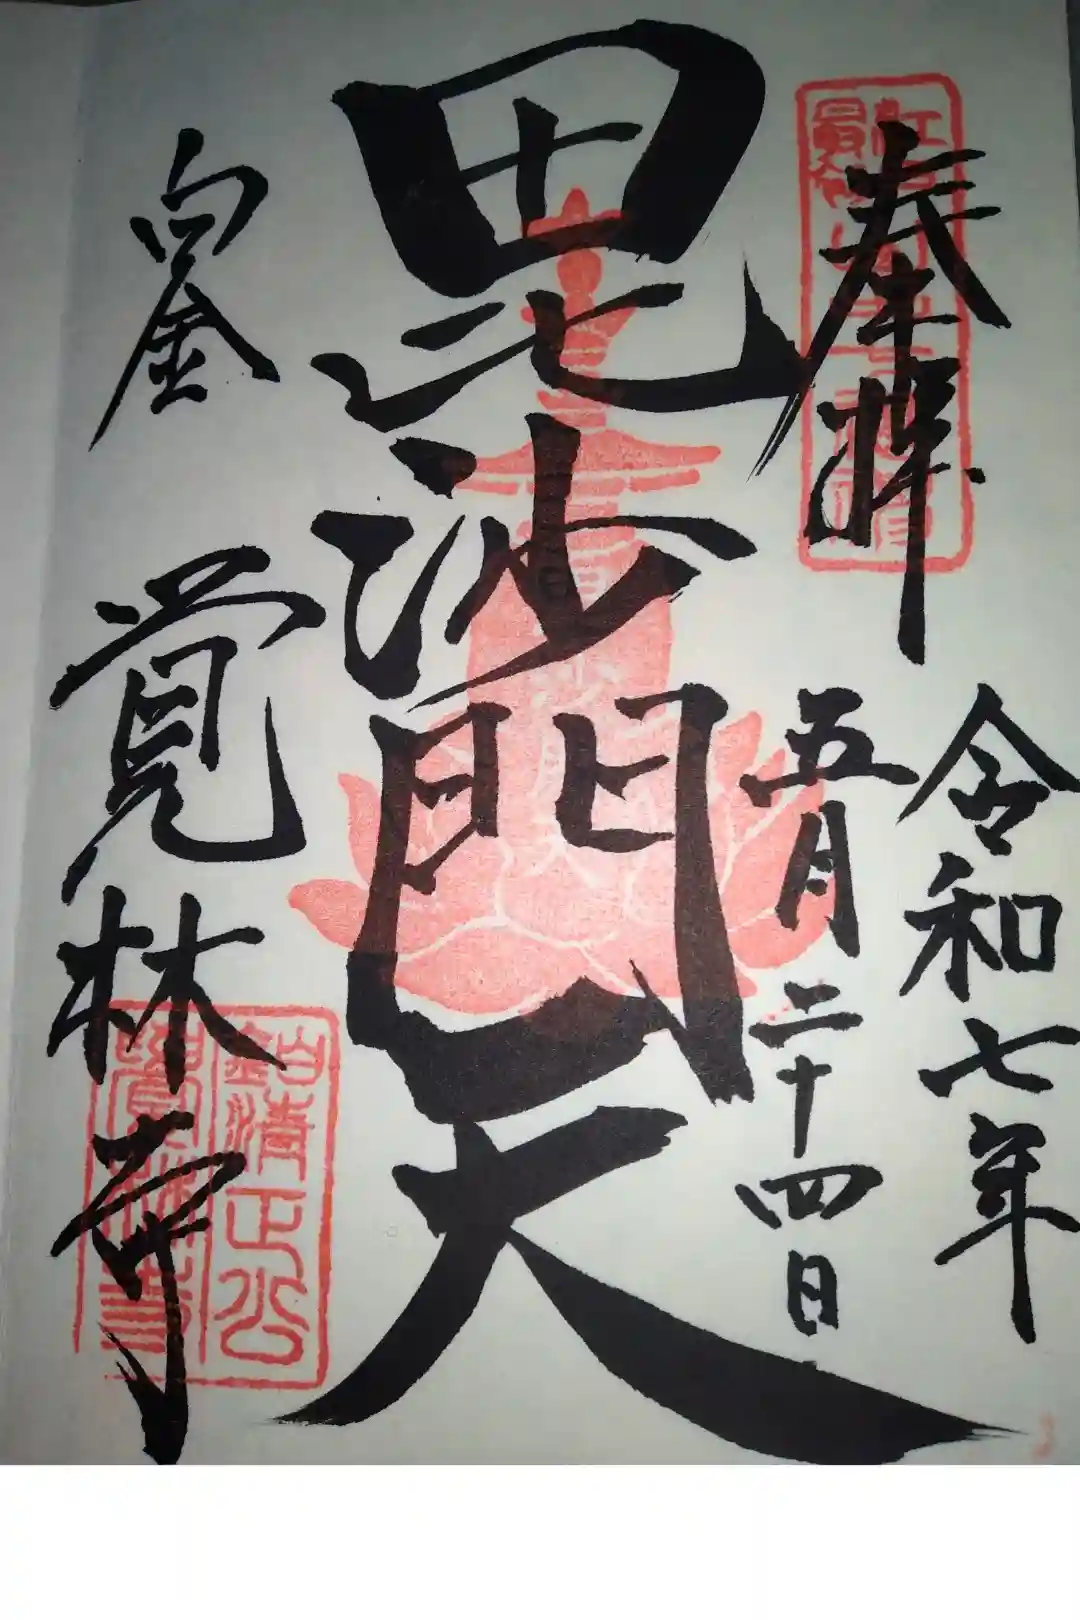 奉拝
令和七年
五月二十四日
毘沙門天
白金
覚林寺
鉑清正公
覺林寺